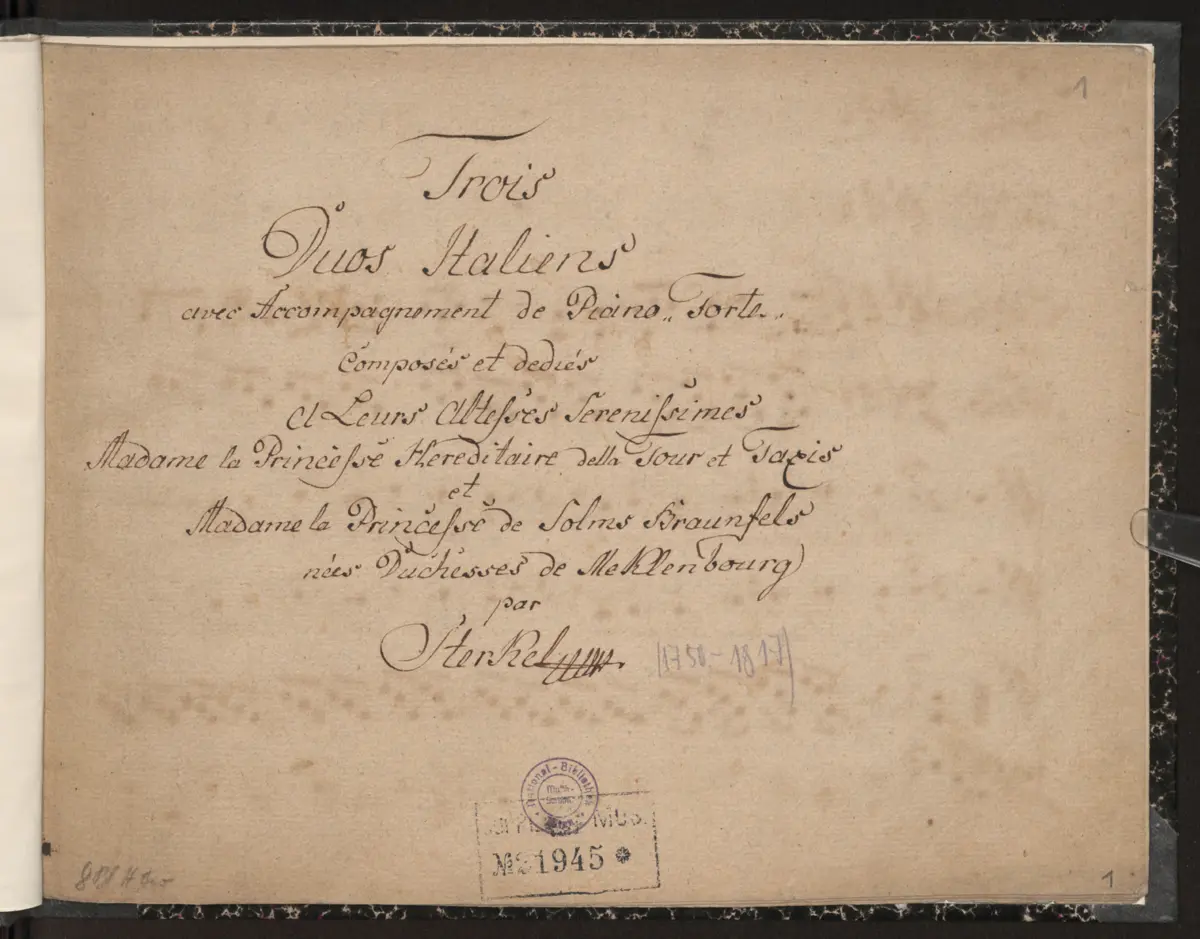 1
Trois
Duos Italiens
avec Accompagnement de Piano„ Forte„
Composés et dediés
A Leurs Altesses Serenissimes
Madame la Princesse Hereditaire della Tour et Taxis
et
Madame la Princesse de Solms Braunfels
nées Duchesses de Meklenbourg
par
Sterkel
1750-1817
National-Bibliothek
MUS.
№ 21945 *
1